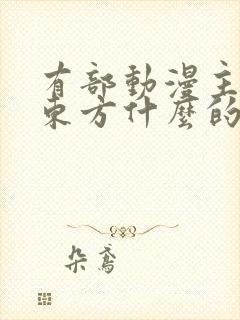 有部動漫主
東方什麼的
朵鳶